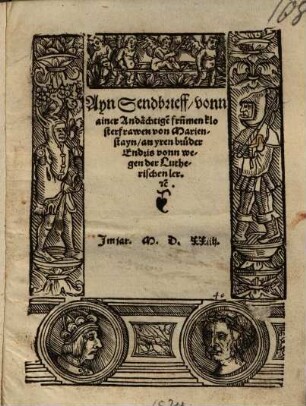 168
Ayn Sendbrieff/ vonn
ainer Andächtigē frūmen klo
sterfrawen von Marien-
stayn/ an yren brůder
Endris vonn we
gen der Luthe-
rischen ler.
ꝛc̄.
Im jar. M. D. XXiiij.